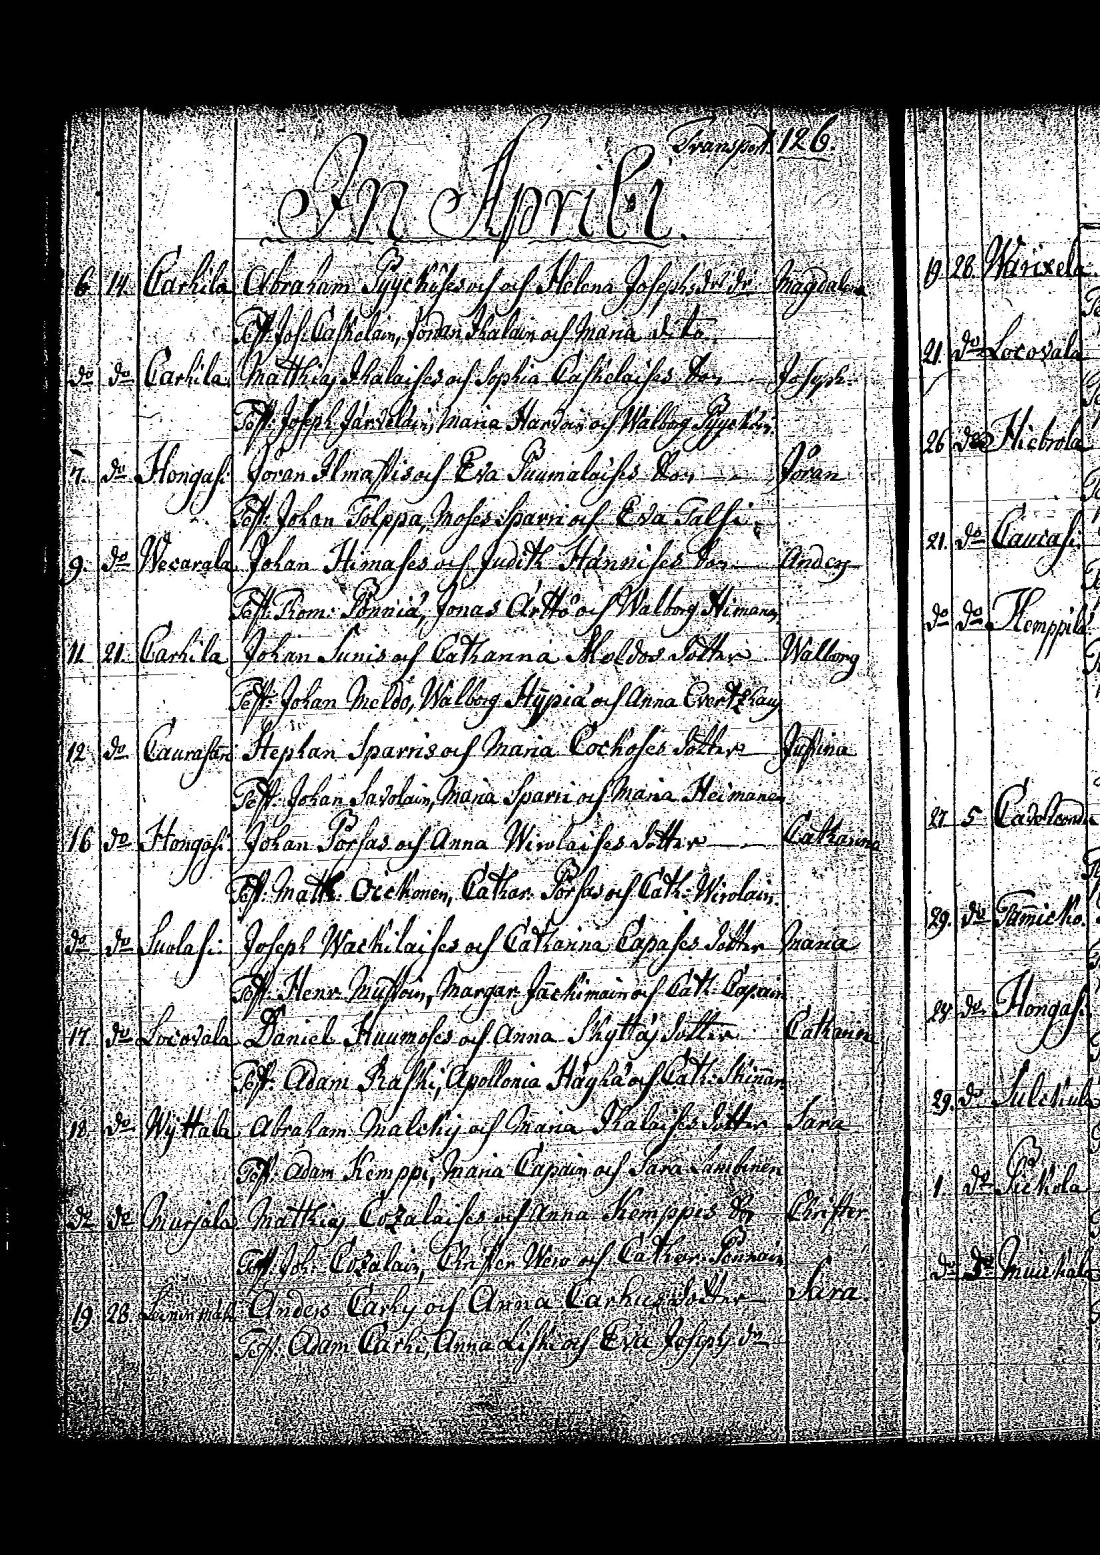 Transport 126.
In Aprili
6. 14. Carhila Abraham Pyyckisesoch och Helena Josephsdr dr Magdalena
Test: Joh: Caskelain, Jöran Ikalain och Maria dito
do do Carhila Matthias Ikalaises och Sophia Caskelaises Son Joseph
Test: Joseph Järveläin, Maria Harvoin och Walborg Pyycköin
7. do Hongasi: Jöran Ilmastis och Eva Puumalaises Son Jöran
Test: Johan Tolppa, Moses Sparri och Eva Talsi
9. do Wecarala Johan Himases och Judith Hännises Son Anders
Test: Rom: Pönniä, Jonas Artto och Walborg Himanen
11. 21. Carhila Johan Sunis och Catharina Moldos Dotter Walborg
Test: Johan Meldo, Walborg Hypiä och Anna Evertzhaus
12 do Caurasari Stephan Sparris och Maria Cockoses Dotter Justina
Test: Johan Savolain, Maria Sparri och Maria Heimanen
16 do Hongasi: Johan Porsas och Anna Wirolaises Dotter Catharina
Test: Math: Ockonen, Cathar: Porsas och Cath: Wirolain
do do Suolasi: Joseph Wackilaises och Catharina Capases Dotter Maria
Test: Henr: Mustoin, Margar: Jäckimain och Cath: Capain
17. do Locovala Daniel Huumoses och Anna Skyttäs Dotter Catharin
Test: Adam Raski, Apollonia Häghä och Cath: Skinnar
18 do Wyttala Abraham Malckis och Maria Ikalaises Dotter Sara
Test: Adam Kemppi, Maria Capain och Sara Lambinen
do do Mursala Matthias Cozalaises och Anna Kemppis Son Christer
Test: Joh: Cozalain, Christer Wero och Cathar: Pönnäin
19. 28. Anders Carhis och Anna Carhus Dotter Sara
Test: Adam Carhi, Anna Liski och Eva Josephs dr
19 28. Warixela
21 do Locovala
26 do Hietrola
21. do Caucasi:
do do Kemppilä
27. 5
29. do Tamicko
28. do Hongasi:
29. do
1. do
do do Muukala